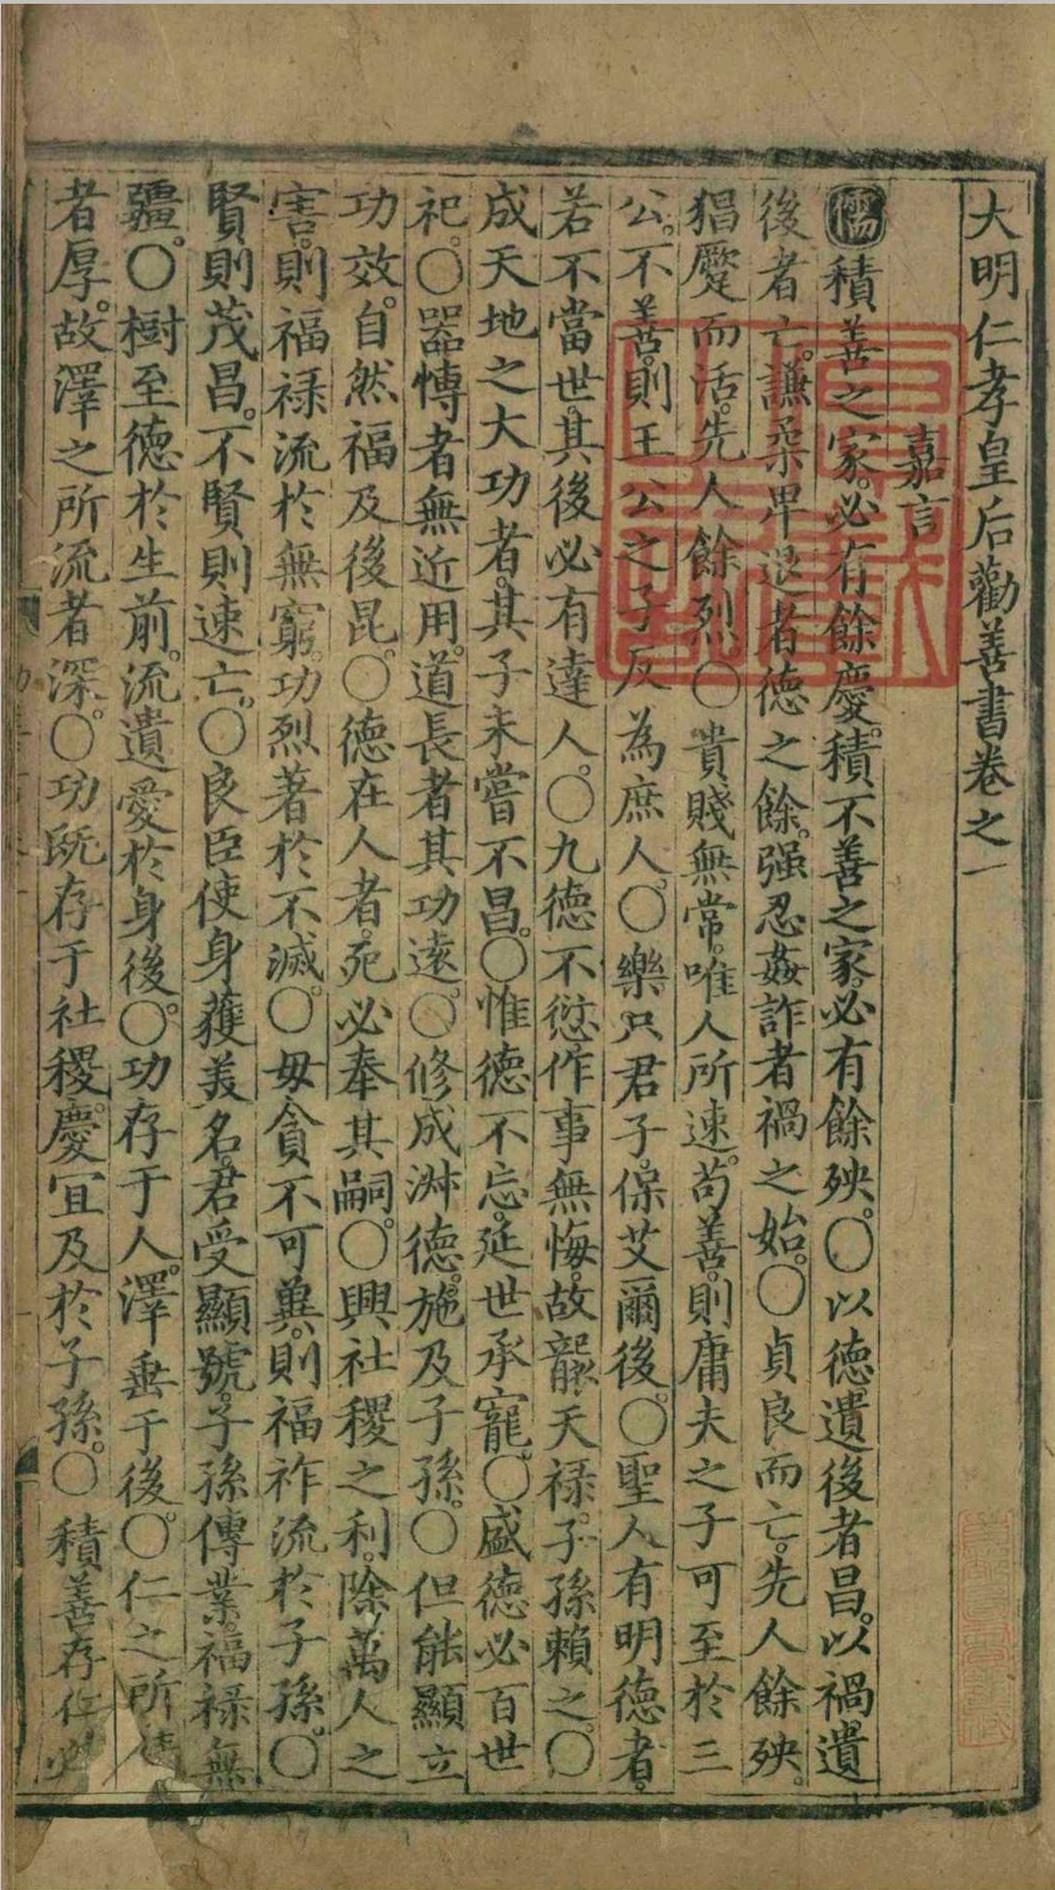 大明仁孝皇后勸善書卷之一
嘉言
儒積善之家。必有餘慶。積不善之家。必有餘殃。〇以德遺後者昌。以禍遺
後者亡。謙柔卑退者德之餘。强忍姦詐者禍之始。〇貞良而亡。先人餘殃。
猖蹷而活。先人餘烈。〇貴賤無常。唯人所速。苟善。則庸夫之子可至於三
公。不善。則王公之子反為庶人。〇樂只君子。保艾爾後。〇聖人有明德者。
若不當世。其後必有達人。〇九德不愆。作事無悔。故襲天祿。子孫賴之。〇
成天地之大功者。其子未嘗不昌。〇惟德不忘。延世承寵。〇盛德必百世
祀。〇器慱者無近用。道長者其功遠。〇修成淋德。施及子孫。〇但能顯立
功效。自然福及後昆。〇德在人者。死必奉其嗣。〇興社稷之利。除萬人之
害。則福祿流於無窮。功烈著於不滅。〇毋貪不可兾。則福祚流於子孫。〇
賢則茂昌。不賢則速亡。〇良臣使身獲美名。君受顯號。子孫傳業。福祿無
疆。〇樹至德於生前。流遺愛於身後。〇功存于人。澤垂于後。〇仁之所
者厚。故澤之所流者深。〇功既存于社稷。慶宜及於子孫。〇積善存仁必